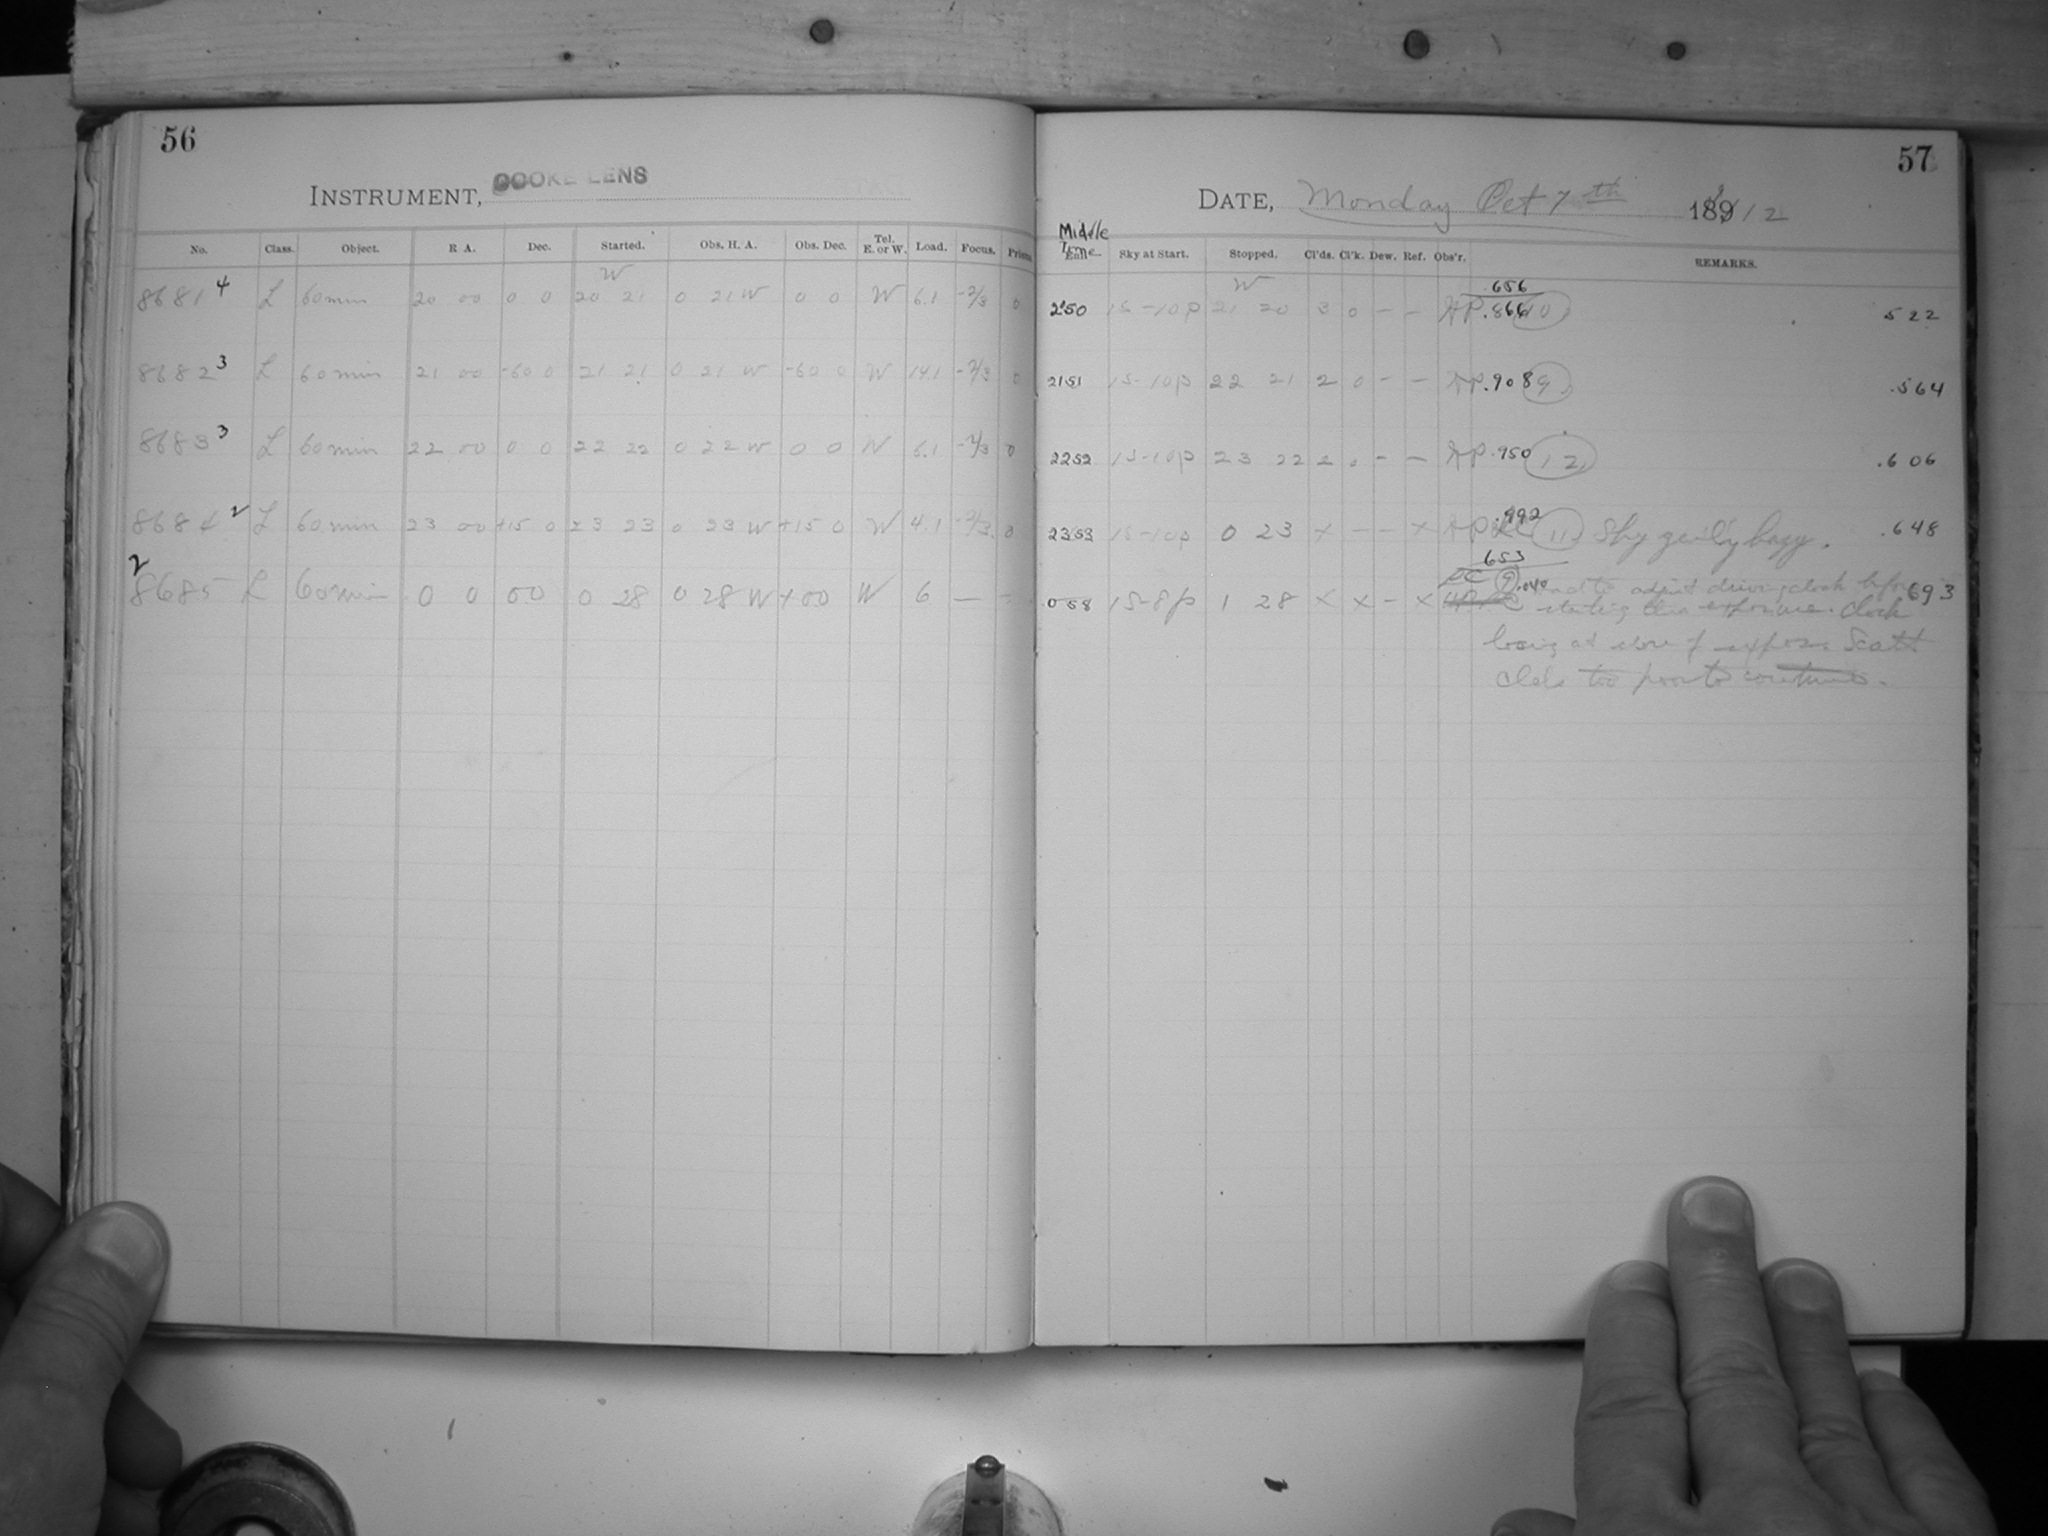 56
INSTRUMENT, COOKE LENS
No. Class. Object. R A. Dec. Started. Obs. H. A. Obs. Dec. Tel. E. or W. Load. Focus. Prism
W
8681 4 L 60 min 20 00 0 0 20 21 0 21 W 0 0 W 6.1 -2/3 0
8682 3 L 60 min 21 00 -60 0 21 21 0 21 W -60 0 W 14.1 -2/3 0
8683 3 L 60 min 22 00 0 0 22 22 0 22 W 0 0 W 6.1 -2/3 0
8684 2 L 60 min 23 00 +15 0 23 23 0 23 W +15 0 W 4.1 -2/3 0
2
8685 L 60 min 0 0 00 0 28 0 28 W +00 W 6 — -
57
DATE, Monday Oct 7th 1912
Middle
Time
Sky at Start. Stopped. Cl'ds. Cl'k. Dew. Ref. Obs'r. REMARKS.
W .656
2050 15-10p 21 20 3 0 - - .866 10 522
2151 15-10p 22 21 2 0 - - .908 9 .564
2252 15-10p 23 22 2 0 - - .950 12 .606
.992
2353 15-10p 0 23 x - - x 11 Sky hazy. .648
653
9 .040 had to adjust driving clock before .693
058 15-8p 1 28 x x - x starting this exposure. Clock
losing at close of expos. Scatt
clds too poor to continue.